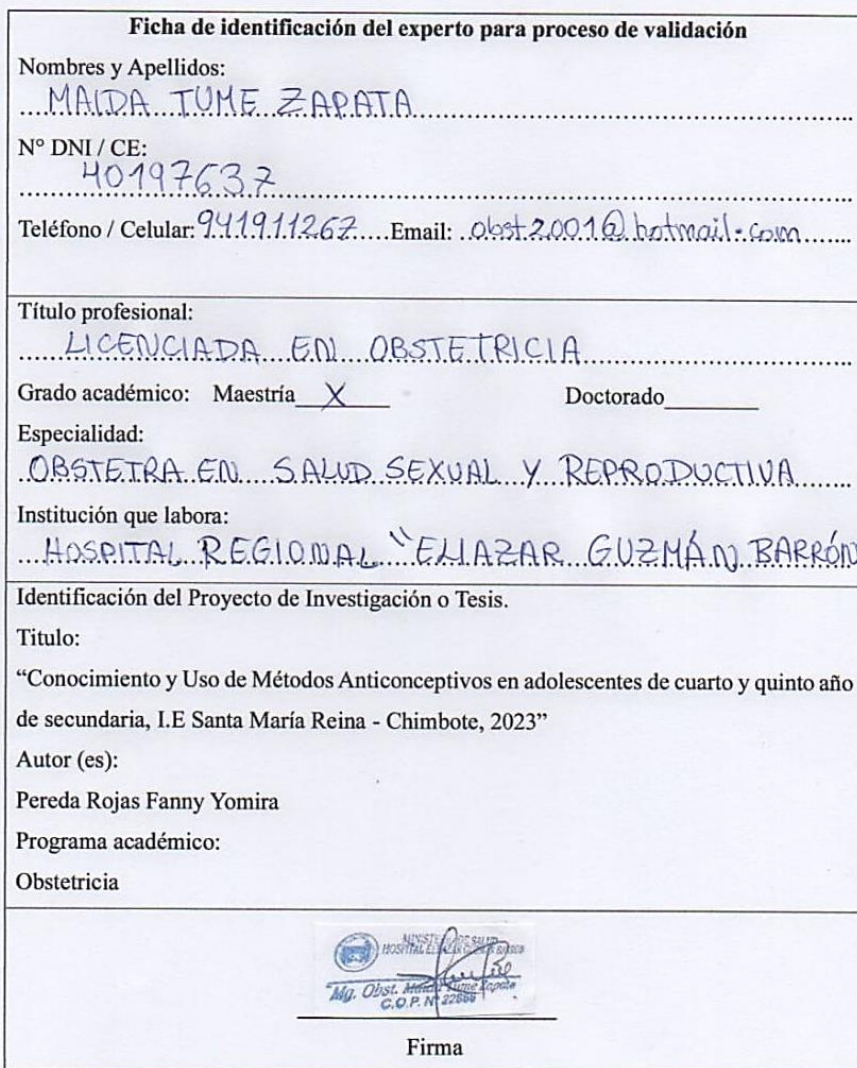 Ficha de identificación del experto para proceso de validación
Nombres y Apellidos:
MAIDA TUME ZAPATA
N° DNI / CE:
40197637
Teléfono / Celular: 941911267 Email: obst2001@hotmail.com
Título profesional:
LICENCIADA EN OBSTETRICIA
Grado académico: Maestría X Doctorado
Especialidad:
OBSTETRA EN SALUD SEXUAL Y REPRODUCTIVA
Institución que labora:
HOSPITAL REGIONAL "ELIAZAR GUZMÁN BARRÓN
Identificación del Proyecto de Investigación o Tesis.
Titulo:
“Conocimiento y Uso de Métodos Anticonceptivos en adolescentes de cuarto y quinto año
de secundaria, I.E Santa María Reina - Chimbote, 2023”
Autor (es):
Pereda Rojas Fanny Yomira
Programa académico:
Obstetricia
MINISTERIO DE SALUD
HOSPITAL
Mg. Obst. Maida Tume Zapata
C.O.P. N°
Firma